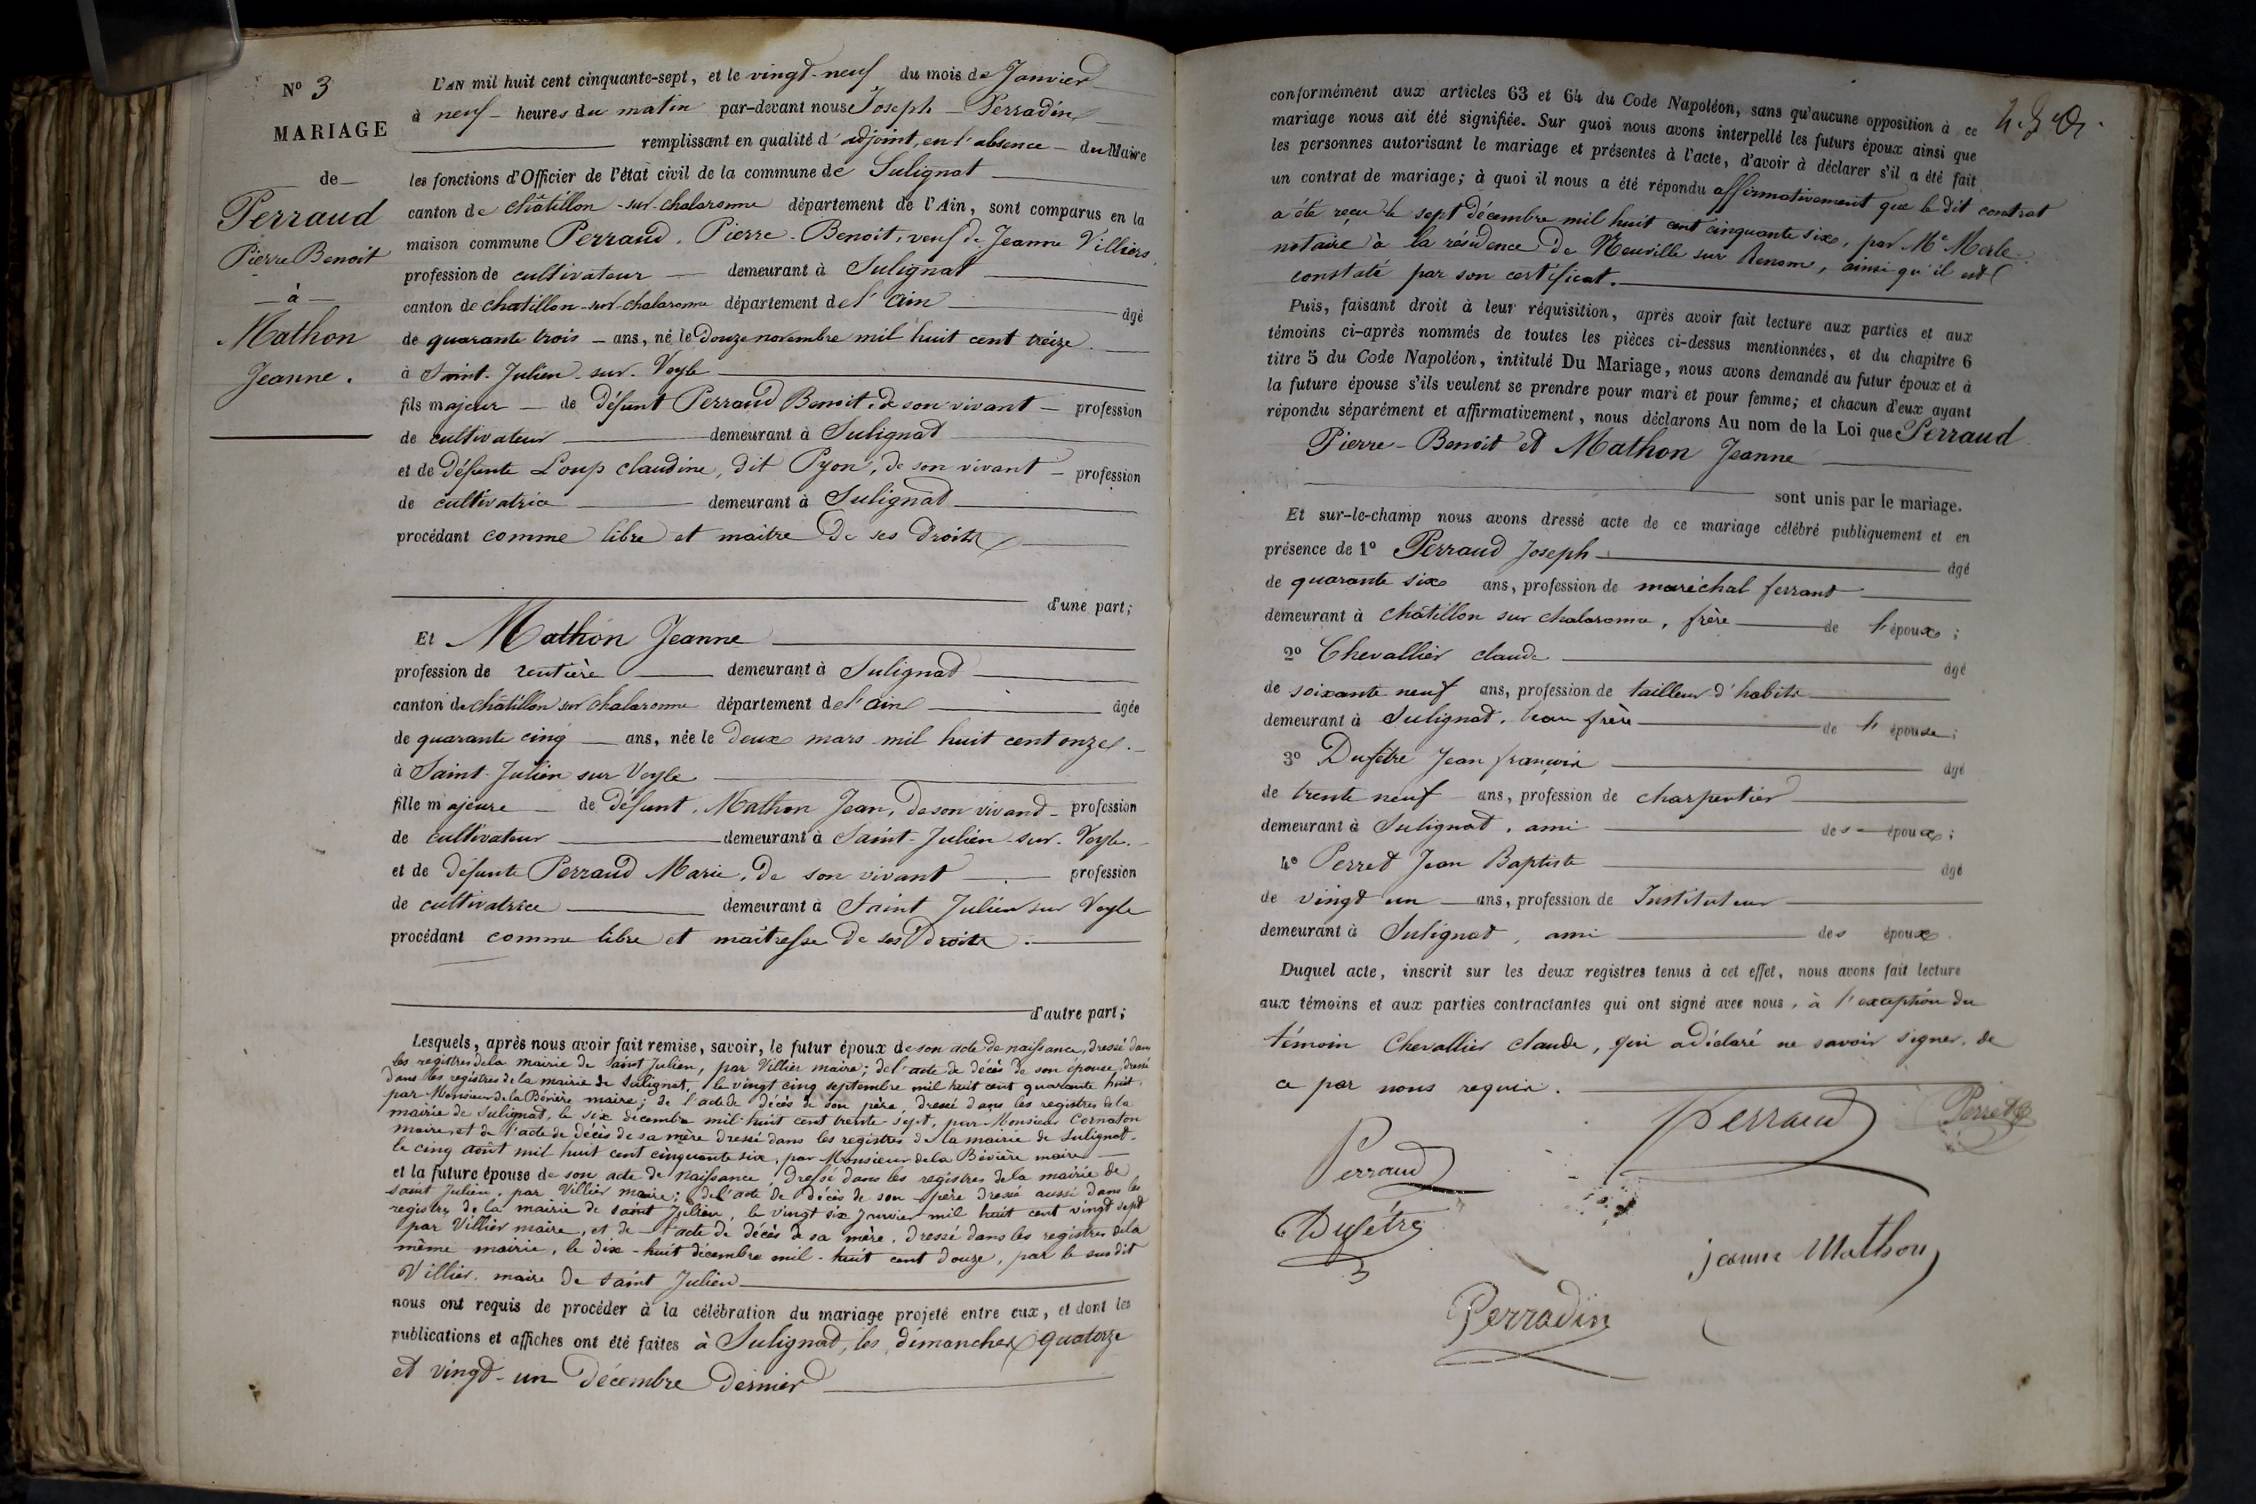 N° 3
MARIAGE
de
Perraud
Pierre Benoit
à
Mathon
Jeanne.
L'AN mil huit cent cinquante-sept, et le vingt-neuf du mois de Janvier
à neuf heures du matin par-devant nous Joseph Perradin
remplissant en qualité d'adjoint, en l'absence du Maire
les fonctions d'Officier de l'état civil de la commune de Sulignat
canton de châtillon-sur-chalaronne département de l'Ain, sont comparus en la
maison commune Perraud, Pierre-Benoit, veuf de Jeanne Villiers,
profession de cultivateur demeurant à Sulignat
canton de chatillon-sur-chalaronne département de l'ain âgé
de quarante trois ans, né le Douze novembre mil huit cent treize
à Saint-Julien-sur-Veyle
fils majeur de défunt Perraud Benoit, de son vivant profession
de cultivateur demeurant à Sulignat
et de défunte Loup claudine, dit Pyon, de son vivant profession
de cultivatrice demeurant à Sulignat
procédant comme libre et maître de ses droits
d'une part;
Et Mathon Jeanne
profession de rentière demeurant à Sulignat
canton de châtillon sur chalaronne département de l'ain âgée
de quarante cinq ans, née le deux mars mil huit cent onze.
à Saint-Julien sur Veyle
fille majeure de défunt, Mathon Jean, de son vivant profession
de cultivateur demeurant à Saint-Julien-sur-Veyle.
et de défunte Perraud Marie, de son vivant profession
de cultivatrice demeurant à Saint Julien sur Veyle
procédant comme libre et maîtresse de ses droits.
d'autre part;
Lesquels, après nous avoir fait remise, savoir, le futur époux de son acte de naissance, dressé dans
les registres de la mairie de Saint Julien, par Villier maire; de l'acte de décès de son épouse, dressé
dans les registres de la mairie de Sulignat, le vingt cinq septembre mil huit cent quarante huit,
par Monsieur de la Bévière maire; de l'acte de décès de son père, dressé dans les registres de la
mairie de Sulignat, le six décembre mil-huit cent trente-sept, par Monsieur Cornaton
maire, et de l'acte de décès de sa mère dressé dans les registres de la mairie de Sulignat.
le cinq août mil huit cent cinquante six, par Monsieur de la Bévière maire
et la future épouse de son acte de naissance, dressé dans les registres de la mairie de
Saint Julien, par Villier maire; de l'acte de décès de son père dressé aussi dans les
registres de la mairie de saint Julien, le vingt six Janvier mil huit cent vingt sept
par Villier maire, et de l'acte de décès de sa mère, dressé dans les registres de la
même mairie, le dix-huit décembre mil-huit cent douze, par le susdit
Villier, maire de saint Julien
nous ont requis de procéder à la célébration du mariage projeté entre eux, et dont les
publications et affiches ont été faites à Sulignat, les dimanches quatorze
et vingt-un Décembre dernier
conformément aux articles 63 et 64 du Code Napoléon, sans qu'aucune opposition à ce
mariage nous ait été signifiée. Sur quoi nous avons interpellé les futurs époux ainsi que
les personnes autorisant le mariage et présentes à l'acte, d'avoir à déclarer s'il a été fait
un contrat de mariage; à quoi il nous a été répondu affirmativement que le dit contrat
a été reçu le sept décembre mil huit cent cinquante six, par Me Merle
notaire à la résidence de Neuville sur Renom, ainsi qu'il est
constaté par son certificat.
Puis, faisant droit à leur réquisition, après avoir fait lecture aux parties et aux
témoins ci-après nommés de toutes les pièces ci-dessus mentionnées, et du chapitre 6
titre 5 du Code Napoléon, intitulé Du Mariage, nous avons demandé au futur époux et à
la future épouse s'ils veulent se prendre pour mari et pour femme; et chacun d'eux ayant
répondu séparément et affirmativement, nous déclarons Au nom de la Loi que Perraud
Pierre-Benoit et Mathon Jeanne
sont unis par le mariage.
Et sur-le-champ nous avons dressé acte de ce mariage célébré publiquement et en
présence de 1° Perraud Joseph âgé
de quarante six ans, profession de maréchal ferrant
demeurant à châtillon sur chalaronne, frère de l'époux;
2° Chevallier claude âgé
de soixante neuf ans, profession de tailleur d'habits
demeurant à Sulignat, beau frère de l'épouse;
3° Dufêtre Jean françois âgé
de trente neuf ans, profession de charpentier
demeurant à Sulignat, ami des époux;
4° Perret Jean Baptiste âgé
de vingt un ans, profession de Instituteur
demeurant à Sulignat, ami des époux
Duquel acte, inscrit sur les deux registres tenus à cet effet, nous avons fait lecture
aux témoins et aux parties contractantes qui ont signé avec nous, à l'exception du
témoin Chevallier claude, qui a déclaré ne savoir signer, de
ce par nous requis.
Perraud
Perret
Perraud
Dufêtre
jeanne Mathon
Perradin